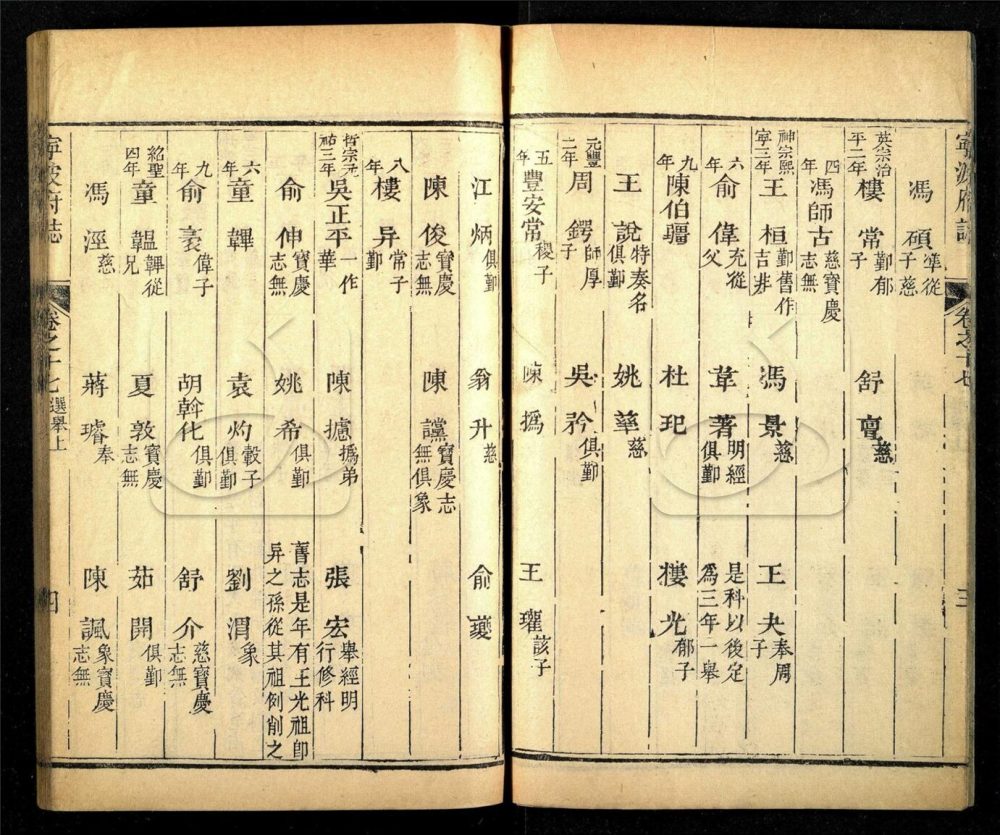 寧波府誌 卷之十七 三
馮碩 準從子慈
英宗治平二年 樓常 郁子鄞 舒亶 慈
四年 馮師古 慈寶慶志無
神宗熙寧三年 王桓 鄞舊作吉非 馮景 慈 王夬 奉周子
六年 俞偉 充從父 葦著 明經俱鄞 是科以後定為三年一舉
九年 陳伯彊 杜玘 樓光 郁子
王說 特奏名俱鄞 姚葦 慈
元豐二年 周鍔 師厚子 吳矜 俱鄞
五年 豐安常 稷子 陳撝 王瓘 該子
江炳 俱鄞 翁升 慈 俞夔
陳俊 寶慶志無 陳讜 寶慶志無俱象
八年 樓异 常子鄞
哲宗元祐三年 吳正平 一作華 陳摅 撝弟 張宏 舉經明行修科
俞伸 寶慶志無 姚希 俱鄞 舊志是年有王光祖即异之孫從其祖例削之
六年 童韗 袁灼 轂子俱鄞 劉渭 象
九年 俞袤 偉子 胡斡化 俱鄞 舒介 慈寶慶志無
紹聖四年 童韞 韗從兄 夏敦 寶慶志無 茹開 俱鄞
馮涇 慈 蔣璿 奉 陳諷 象寶慶志無
寧波府誌 卷之十七 選舉上 四